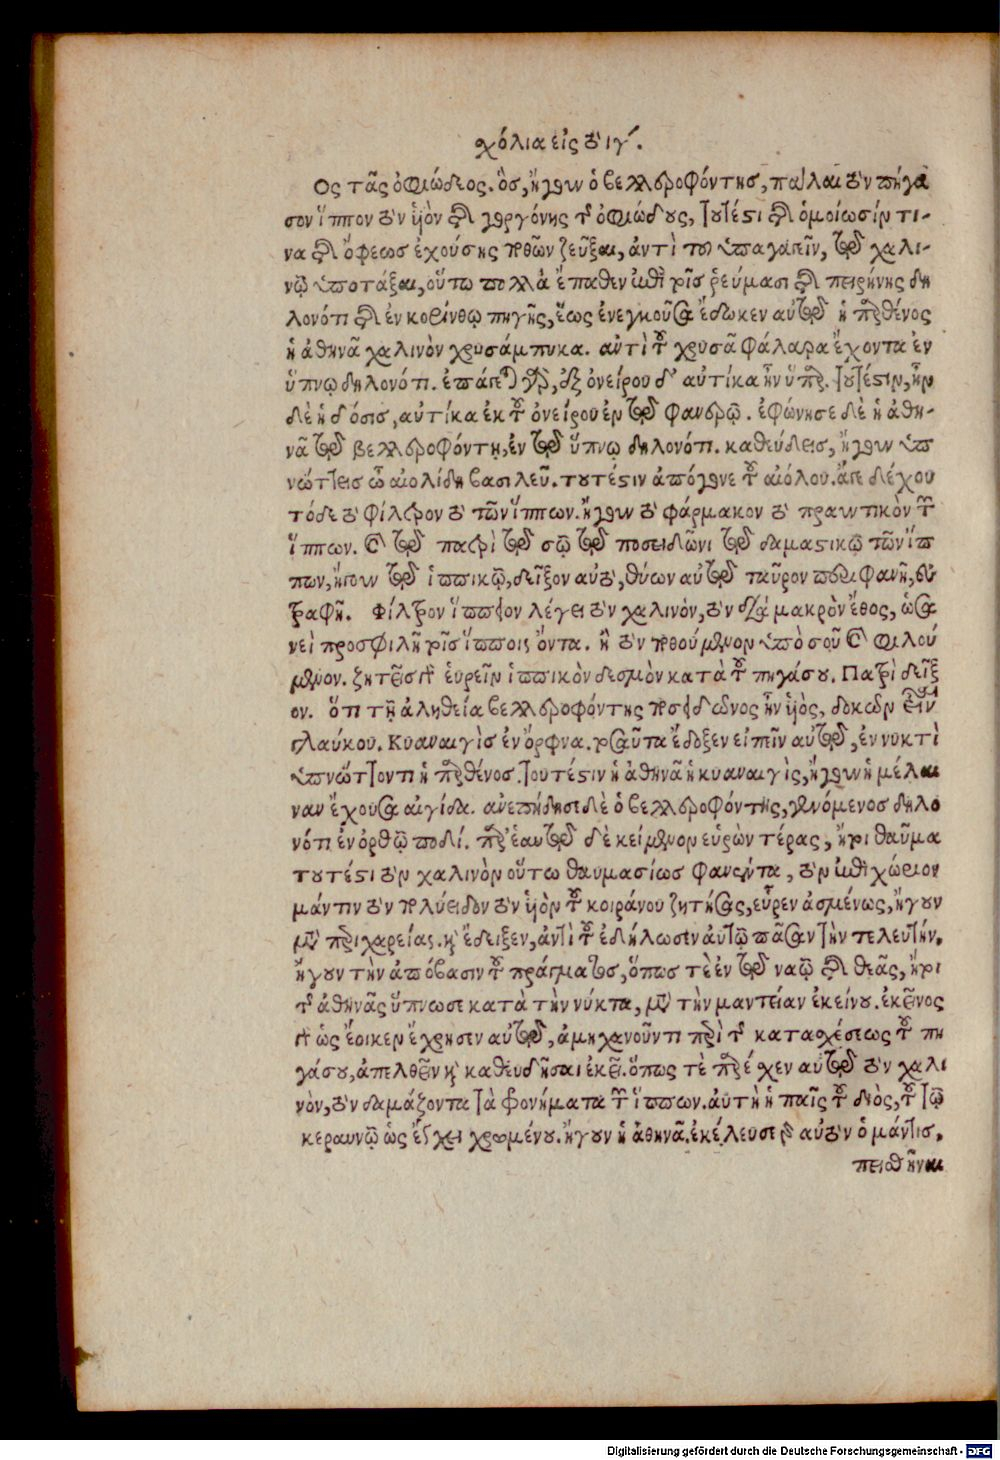 σχόλια εἰς τὸ ιγ΄.
Ος τᾶς ὀφιώδεος. ὃς, ἤγουν ὁ βελλεροφόντης, πάλαι τὸν πήγα
σον ἵππον τὸν υἱὸν τῆς γοργόνης τῆς ὀφιώδους, τουτέστι τῆς ὁμοίωσίν τι-
να τῆς ὄφεως ἐχούσης ποθῶν ζεῦξαι, ἀντὶ τοῦ ὑπαγαγεῖν, τῷ χαλι-
νῷ ὑποτάξαι, οὕτω πολλὰ ἔπαθεν ἐπὶ τοῖς ῥεύμασι τῆς πειρήνης δη
λονότι τῆς ἐν κορίνθῳ πηγῆς, ἕως ἐνεγκοῦσα ἔδωκεν αὐτῷ ἡ παρθένος
ἡ ἀθηνᾶ χαλινὸν χρυσάμπυκα. αντὶ τοῦ χρυσᾶ φάλαρα ἔχοντα ἐν
ὕπνῳ δηλονότι. ἐπάγει γὰρ, ἐξ ὀνείρου δ' αὐτίκα ἦν ὕπαρ. τουτέστιν, ἦν
δὲ ἡ δόσις, αὐτίκα ἐκ τοῦ ὀνείρου ἐν τῷ φανερῷ. ἐφώνησε δὲ ἡ ἀθη-
νᾶ τῷ βελλεροφόντῃ, ἐν τῷ ὕπνῳ δηλονότι. καθεύδεις, ἤγουν ὑπ
νώττεις ὦ αἰολίδη βασιλεῦ. τουτέστιν ἀπόγονε τοῦ αἰόλου. ἄγε δέχου
τόδε τὸ φίλτρον τὸ τῶν ἵππων. ἤγουν τὸ φάρμακον τὸ πραϋντικὸν τῶν
ἵππων. καὶ τῷ πατρὶ τῷ σῷ τῷ ποσειδῶνι τῷ δαμαστικῷ τῶν ἵπ
πων, ἤγουν τῷ ἱππικῷ, δεῖξον αὐτὸ, θύων αὐτῷ ταῦρον περιφανῆ, εὐ
τραφῆ. Φίλτρον ἵππειον λέγει τὸν χαλινὸν, τὸν διὰ μακρὸν ἔθος, ὡσα
νεὶ προσφιλῆ τοῖς ἵπποις ὄντα. ἢ τὸν ποθούμενον ὑπὸ σοῦ καὶ φιλού
μενον. ζητεῖς γὰρ εὑρεῖν ἱππικὸν δεσμὸν κατὰ τοῦ πηγάσου. Πατρὶ δεῖξ
ον. ὅτι τῇ ἀληθείᾳ βελλεροφόντης ποσειδῶνος ἦν υἱὸς, δοκῶν εἶναι
γλαύκου. Κυαναιγὶς ἐν ὄρφνα. τοσαῦτα ἔδοξεν εἰπεῖν αὐτῷ, ἐν νυκτὶ
ὑπνώττοντι ἡ παρθένος. τουτέστιν ἡ ἀθηνᾶ ἡ κυαναιγὶς, ἤγουν ἡ μέλαι
ναν ἔχουσα αἰγίδα. ανεπήδησε δὲ ὁ βελλεροφόντης, γενόμενος δηλο
νότι ἐν ὀρθῷ ποδί. παρ' ἑαυτῷ δὲ κείμενον εὑρὼν τέρας, ἤτοι θαῦμα
τουτέστι τὸν χαλινὸν οὕτω θαυμασίως φανέντα, τὸν ἐπιχώριον
μάντιν τὸν πολύειδον τὸν υἱὸν τοῦ κοιράνου ζητήσας, εὗρεν ἀσμένως, ἤγουν
μετὰ περιχαρείας. καὶ ἔδειξεν, ἀντὶ τοῦ ἐδήλωσεν αὐτῷ πᾶσαν τὴν τελευτὴν.
ἤγουν τὴν ἀπόβασιν τοῦ πράγματος, ὅπως τὲ ἐν τῷ ναῷ τῆς θεᾶς, ἤτοι
τῆς ἀθηνᾶς ὕπνωσε κατὰ τὴν νύκτα, μετὰ τὴν μαντείαν ἐκείνου. ἐκεῖνος
γὰρ ὡς ἔοικεν ἔχρησεν αὐτῷ, ἀμηχανοῦντι περὶ τῆς κατασχέσεως τοῦ πη
γάσου, ἀπελθεῖν καὶ καθευδῆσαι ἐκεῖ. ὅπως τὲ παρέσχεν αὐτῷ τὸν χαλι
νὸν, τὸν δαμάζοντα τὰ φρονήματα τῶν ἵππων. αὐτὴ ἡ παῖς τοῦ διὸς, τοῦ τῷ
κεραυνῷ ὡς ἔγχει χρωμένου. ἤγουν ἡ ἀθηνᾶ. ἐκέλευσε δὲ αὐτὸν ὁ μάντις.
πεισθῆναι
Digitalisierung gefördert durch die Deutsche Forschungsgemeinschaft - DFG